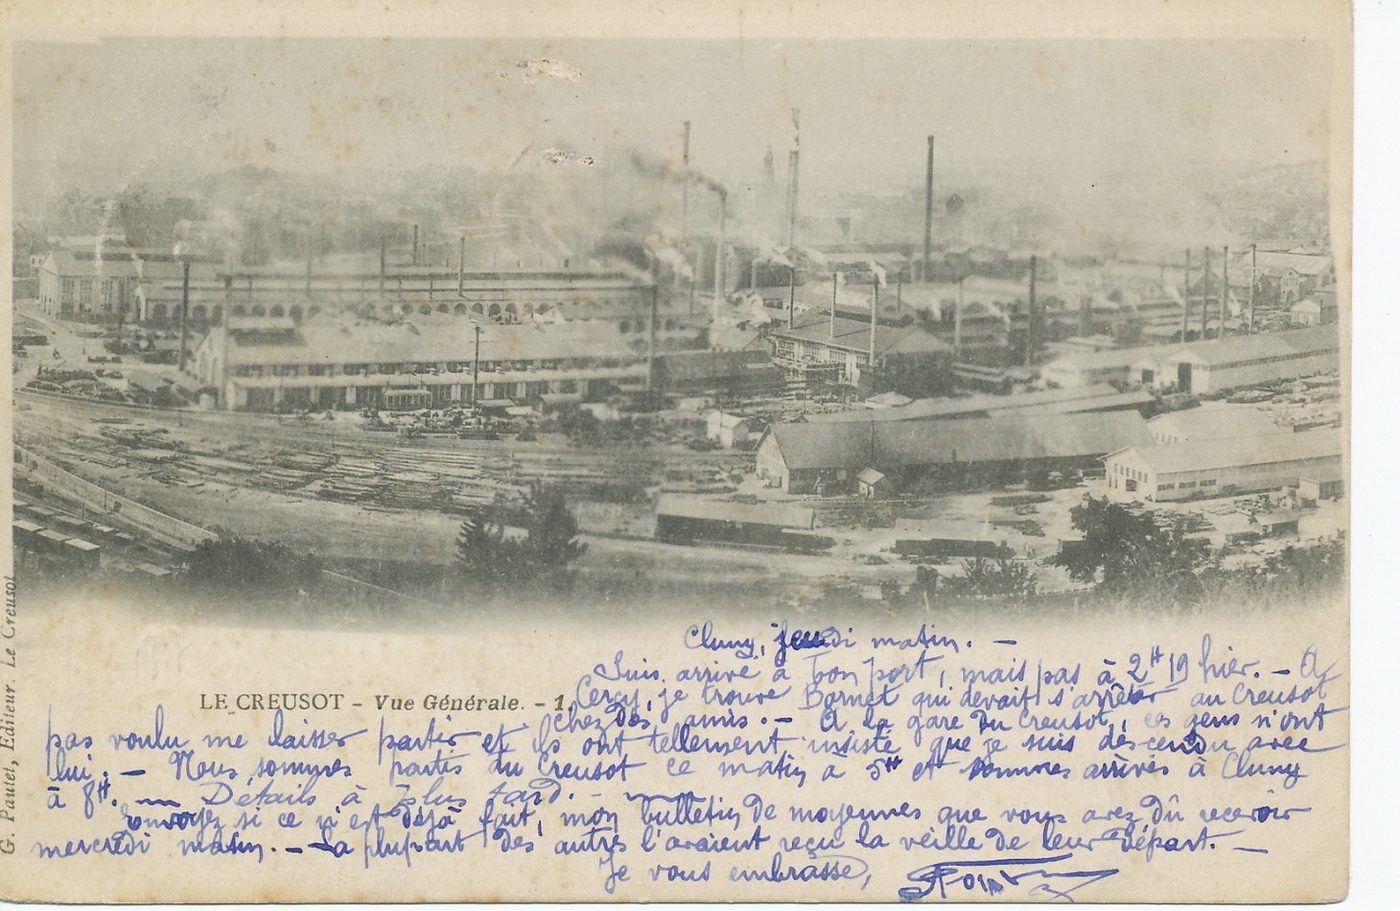 Cluny, jeudi matin. —
Suis arrivé à bon port, mais pas à 2H 19 hier. — A
LE CREUSOT - Vue Générale. - 1.
Cercy, je trouve Bornet qui devait s'arrêter au Creusot
chez des amis. — A la gare du Creusot, ces gens n'ont
pas voulu me laisser partir et ils ont tellement insisté que je suis descendu avec
lui. — Nous sommes partis du Creusot ce matin à 5H et sommes arrivés à Cluny
à 8H. — Détails à plus tard. —
Envoyez si ce n'est déjà fait, mon bulletin de moyennes que vous avez dû recevoir
mercredi matin. — La plupart des autres l'avaient reçu la veille de leur départ. —
Je vous embrasse,
G. Pautet, Editeur. Le Creusot